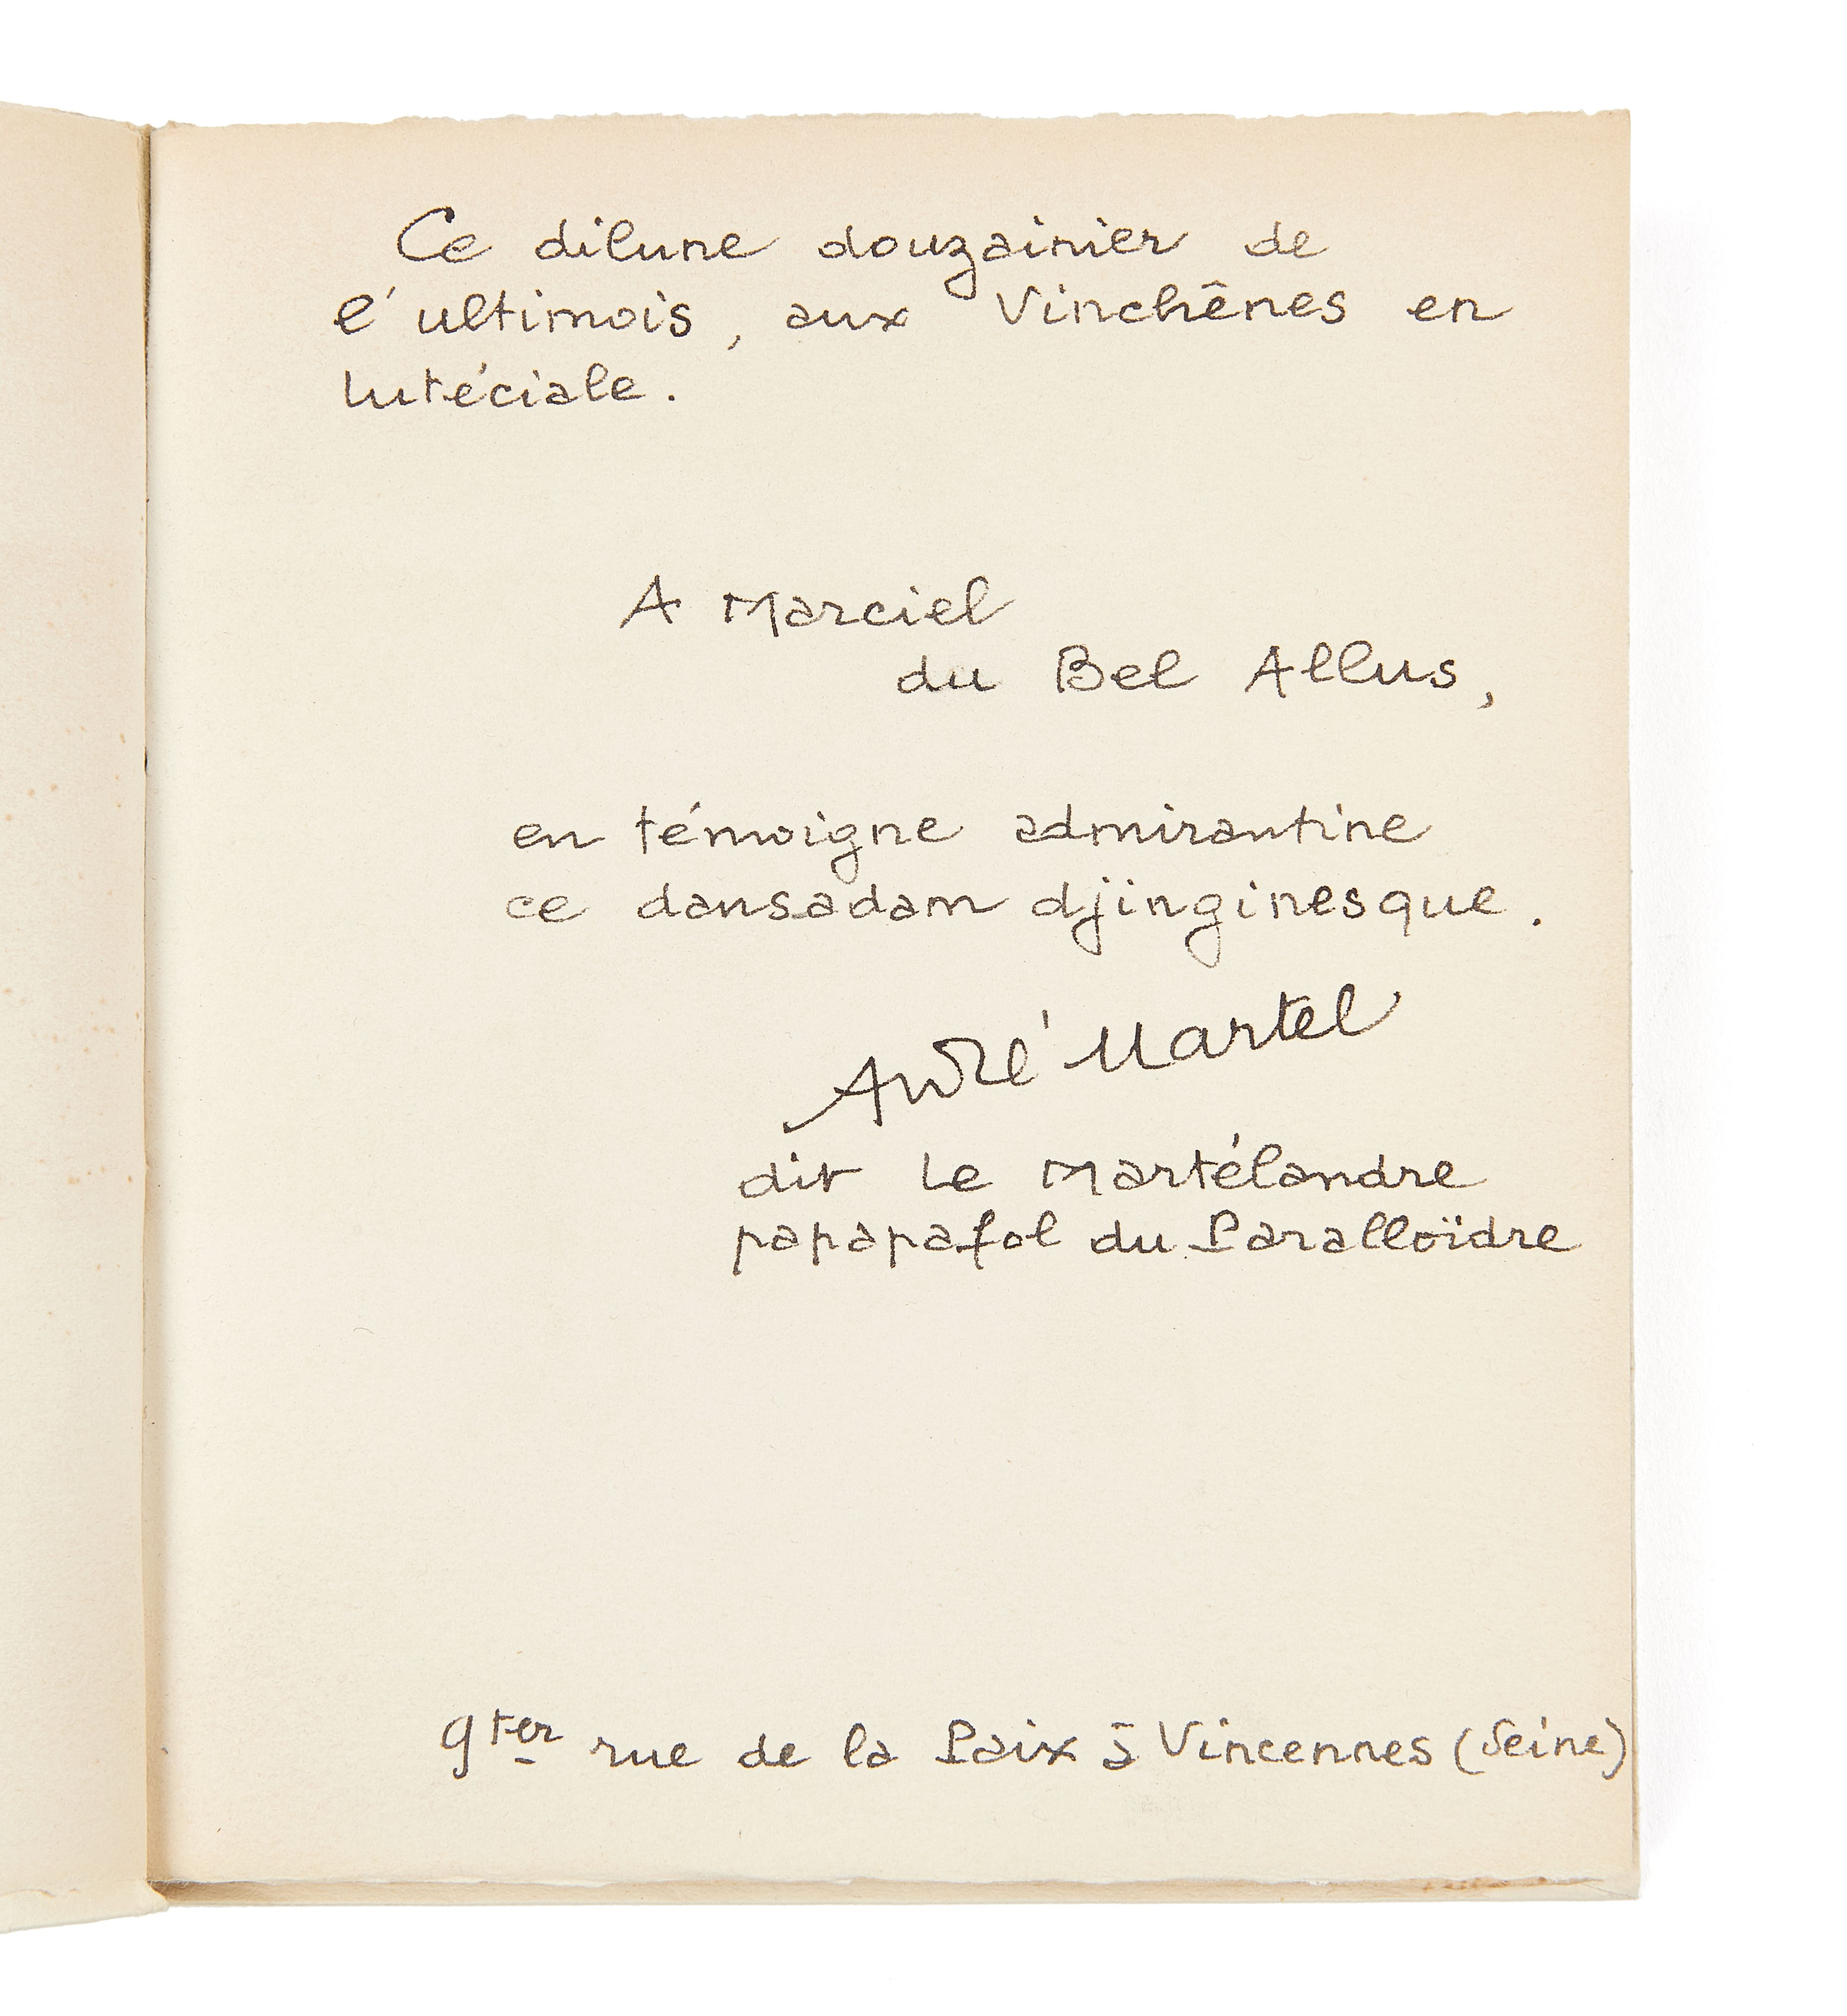 Ce dilune douzainier de
l'ultimois, aux Vinchênes en
lutéciale.
A Marciel
du Bel Allus,
en témoigne admirantine
ce dansadam djinginesque.
André Martel
dit Le Martélandre
papapafol du Paralloïdre
9ter rue de la Paix à Vincennes (Seine)